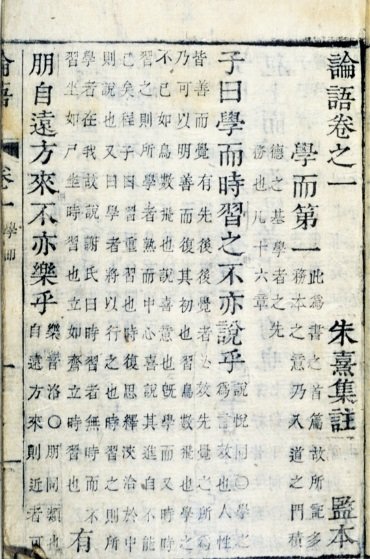 論語卷之一 朱熹集註 監本
學而第一
此為書之首篇故所記多
務本之意乃入道之門積
德之基學者之先
務也凡十六章
子曰學而時習之不亦說乎
說悅同○學之
為言效也人性
皆善而覺有先後後覺者必效先覺之所為
乃可以明善而復其初也習鳥數飛也學之
不已如鳥數飛也說喜意也既學而又時時
習之則所學者熟而中心喜說其進自不能
已矣程子曰習重習也時復思繹浹洽於中
則說也又曰學者將以行之也時習之則所
學者在我故說謝氏曰時習者無時而不
習坐如尸坐時習也立如齊立時習也
有
朋自遠方來不亦樂乎
樂音洛○朋同類也
自遠方來則近者可
論語 卷一 學而 一